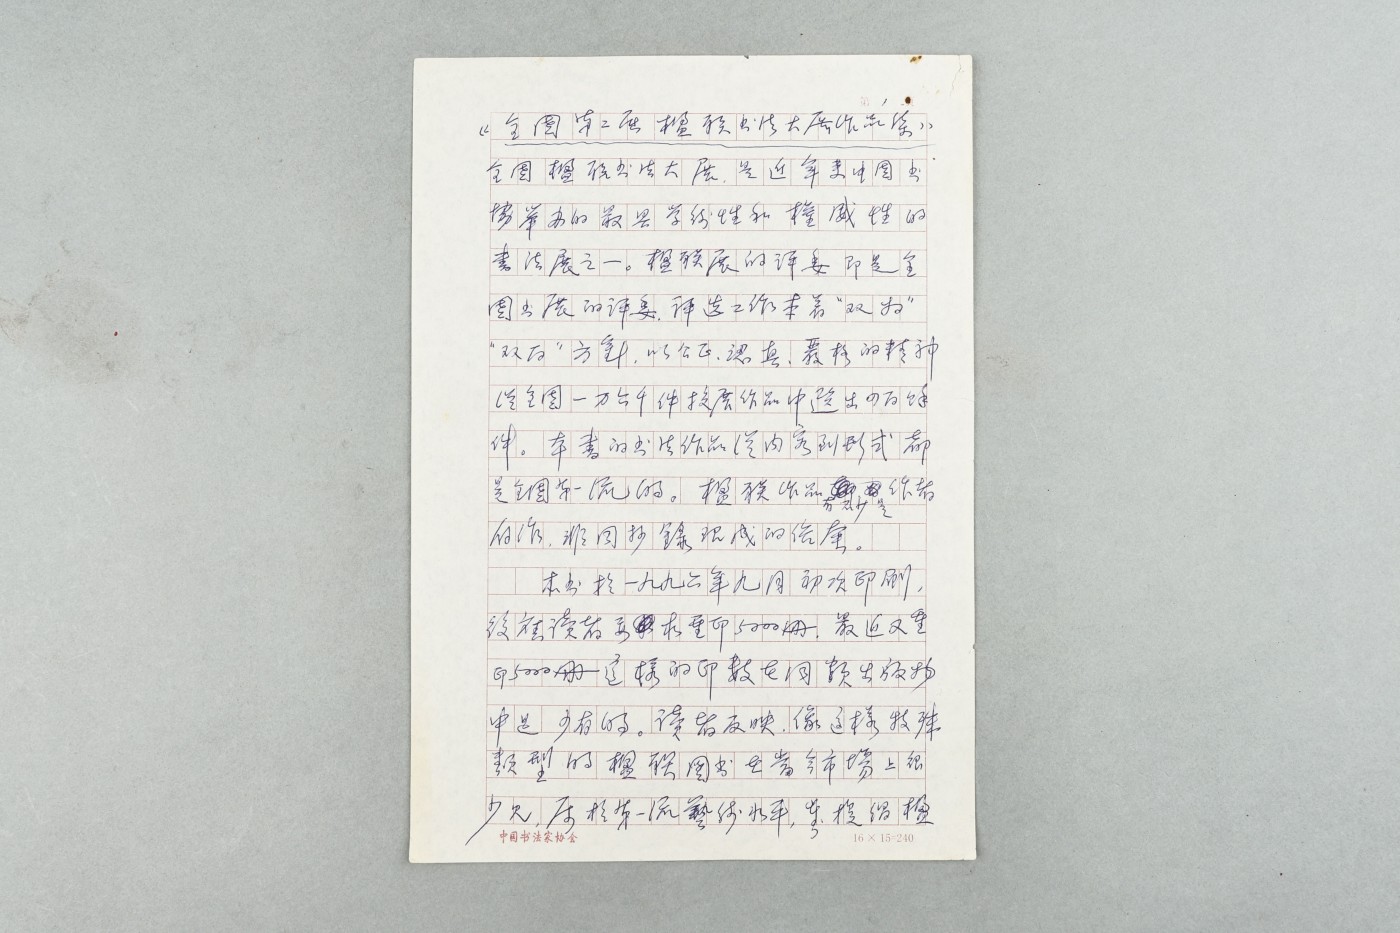 第 1 页
《全国第二届楹联书法大展作品集》
全国楹联书法大展，是近年来中国书
协举办的最具学術性和權威性的
書法展之一。楹联展的评委即是全
国书展的评委，评选工作本着“双为”
“双百”方針，以公正、認真、嚴格的精神
從全国一万六千件投展作品中選出少百餘
件。本書的书法作品從内容到形式都
是全国第一流的。楹联作品有不少是作者
自作，非同抄錄现成的
本书於一九九六年九月初次印刷，
後應读者要求重印5000册，最近又重
印5000册 這樣的印数在同類出版物
中是少有的。读者反映，像這樣特殊
類型的楹联图书在當今市場上很
少见，属於第一流藝術水平，
中国书法家协会
16×15=240